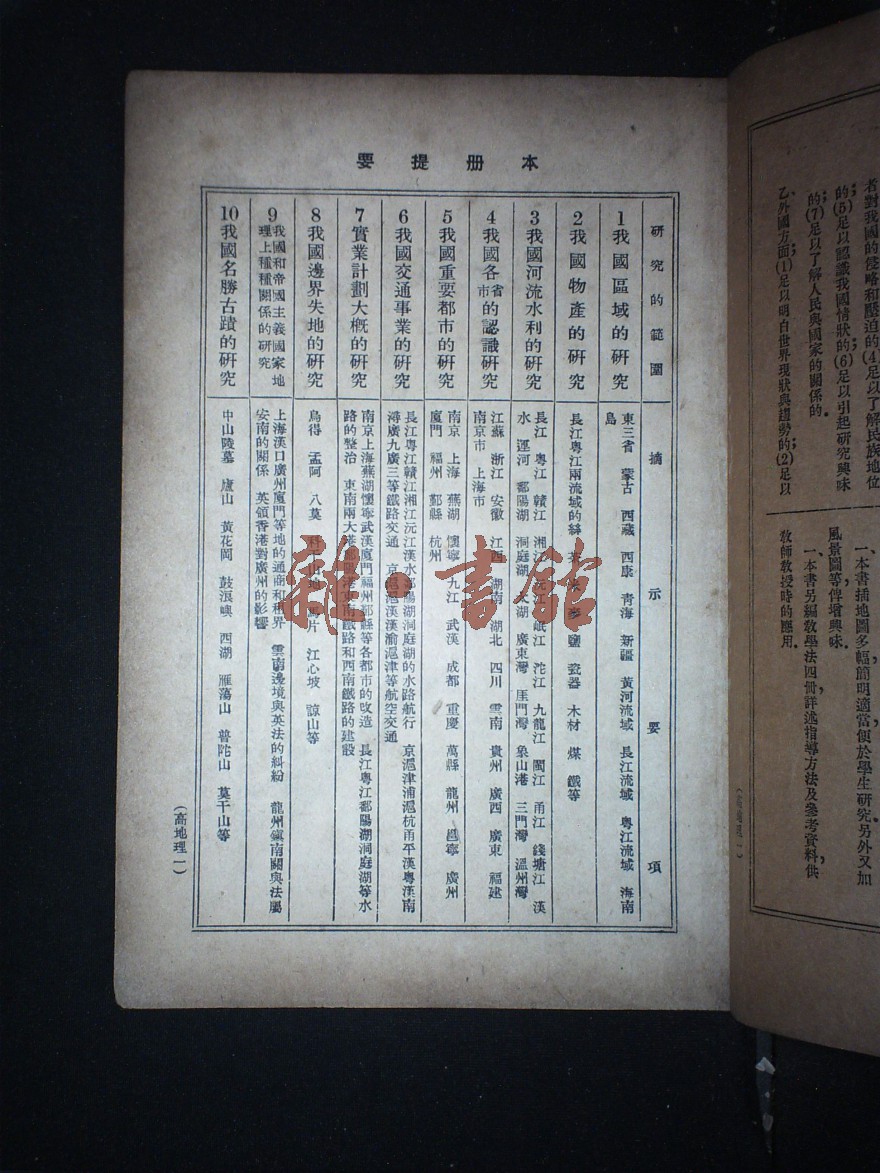 者對我國的侵略和壓迫的；(4)足以了解民族地位
的；(5)足以認識我國情狀的；(6)足以引起研究興味
的；(7)足以了解人民與國家的關係的。
乙、外國方面；(1)足以明白世界現狀與趨勢的；(2)足以
一、本書插地圖多幅，簡明適當，便於學生研究另外又加
風景圖等，俾增興味。
一、本書另編教學法四冊，詳述指導方法及參考資料，供
教師教授時的應用。
本冊提要
研究的範圍
摘示要項
1 我國區域的研究
東三省 蒙古 西藏 西康 青海 新疆 黃河流域 長江流域 粵江流域 海南
島
2 我國物產的研究
長江粵江兩流域的絲 茶 米 麥 鹽 瓷器 木材 煤 鐵等
3 我國河流水利的研究
長江 粵江 贛江 湘江 沅江 岷江 沱江 九龍江 閩江 甬江 錢塘江 漢
水 運河 鄱陽湖 洞庭湖 太湖 廣東灣 厓門灣 象山港 三門灣 溫州灣
4 我國各省市的認識研究
江蘇 浙江 安徽 江西 湖南 湖北 四川 雲南 貴州 廣西 廣東 福建
南京市 上海市
5 我國重要都市的研究
南京 上海 蕪湖 懷寧 九江 武漢 成都 重慶 萬縣 龍州 邕寧 廣州
廈門 福州 鄞縣 杭州
6 我國交通事業的研究
長江粵江贛江湘江沅江漢水鄱陽湖洞庭湖的水路航行 京滬津浦滬杭甬平漢粵漢南
潯廣九廣三等鐵路交通 京滬滬漢漢渝滬津等航空交通
7 實業計劃大概的研究
南京上海蕪湖懷寧武漢廈門福州鄞縣等各都市的改造 長江粵江鄱陽湖洞庭湖等水
路的整治 東南兩大港鄱陽港東南鐵路和西南鐵路的建設
8 我國邊界失地的研究
烏得 孟阿 八莫 科干山地 馬片 江心坡 諒山等
9 我國和帝國主義國家地
理上種種關係的研究
上海漢口廣州廈門等地的通商和租界 雲南邊境與英法的糾紛 龍州鎮南關與法屬
安南的關係 英領香港對廣州的影響
10 我國名勝古蹟的研究
中山陵墓 廬山 黃花岡 鼓浪嶼 西湖 雁蕩山 普陀山 莫干山等
(高地理一)
雜·書館